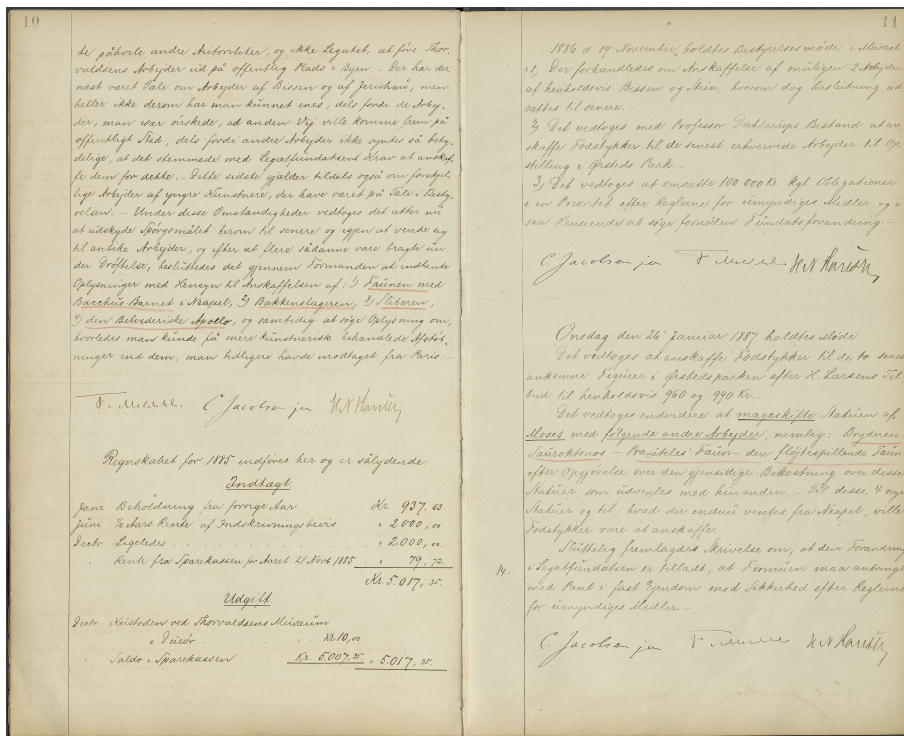 10
te påhvile andre Autoriteter, og ikke Legatet, at före Thor-
valdsens Arbejder ud på offentlig Plads i Byen. — Der har der
næst været Tale om Arbejder af Bissen og af Jerichau, men
heller ikke derom har man kunnet enes, dels fordi de Arbej-
der, man især önskede, ad anden Vej ville komme frem på
offentligt Sted, dels fordi andre Arbejder ikke syntes så bety-
delige, at det stemmede med Legatfundatsens Krav at anskaf-
fe dem for dette. Dette sidste gjælder tildels også om forskjel-
lige Arbejder af yngre Kunstnere, der have været på Tale i Besty-
relsen. — Under disse Omstændigheder vedtoges det atter nu
at udskyde Spörgsmålet herom til senere og igjen at vende sig
til antike Arbejder, og efter at flere sådanne vare bragte un-
der Dröftelse, besluttedes det gjennem Formanden at indhente
Oplysninger med Hensyn til Anskaffelsen af: 1) Faunen med
Bacchus-Barnet i Neapel, 2) Bækkenslageren, 3) Sliberen,
4) den Belvederiske Apollo, og samtidig at söge Oplysning om,
hvorledes man kunde få mere kunstnerisk behandlede Afstöb-
ninger end dem, man tidligere havde modtaget fra Paris. —
F. Meldahl. C Jacobsen jun H N Hansen
Regnskabet for 1885 indföres her og er sålydende:
Indtægt
Janr Beholdning fra forrige Aar Kr 937. 63.
Juni ½ Aars Rente af Indskrivningsbevis " 2,000, 00
Decbr Ligeledes " 2,000, 00.
" Rente fra Sparekassen for Aaret til Novb 1885 " 79, 72.
Kr. 5,017, 35.
Udgift.
Decbr Kustoden ved Thorvaldsens Musæum
i Ducör Kr 10, 00
" Saldo i Sparekassen Kr. 5,007, 35 " 5,017, 35.
11
1886 d 19 November, holdtes Bestyrelsesmöde i Museet
1, Der forhandledes om Anskaffelse af muligen 2 Arbejder
af henholdsvis Bissen og Stein, hvorom dog Beslutning ud
sattes til senere. —
2) Det vedtoges med Professor Dahlerups Bistand at an-
skaffe Fodstykker til de senest erhvervede Arbejder til Op-
stilling i Örsteds Park. —
3) Det vedtoges at omsætte 100,000 Kr Kgl Obligationer
i en Prioritet efter Reglerne for umyndiges Midler og i
saa Henseende at söge fornöden Fundatsforandring. —
C Jacobsen jun F Meldahl H N Hansen
Onsdag den 26 Januar 1887 holdtes Möde.
Det vedtoges at anskaffe Fodstykker til de to senest
ankomne Figurer i Örstedsparken efter H. Larsens Til-
bud til henholdsvis 960 og 990 Kr. —
Det vedtoges endvidere at mageskifte Statuen af
Moses med fölgende andre Arbejder, nemlig: Bryderen
Sauroktonos — Praxiteles' Faun — den flöjtespillende Faun
efter Opgjörelse over den gjensidige Bekostning over disse
Statuer som udvexles med hinanden. — Til disse 4 nye
Statuer og til, hvad der endnu ventes fra Neapel, ville
Fodstykker være at anskaffe.
Sluttelig fremlagdes Skrivelse om, at den Forandring
i Legatfundatsen er tilladt, at Formuen maa anbringes
14.
med Pant i fast Ejendom mod Sikkerhed efter Reglerne
for umyndiges Midler. —
C. Jacobsen jun F Meldahl H N Hansen